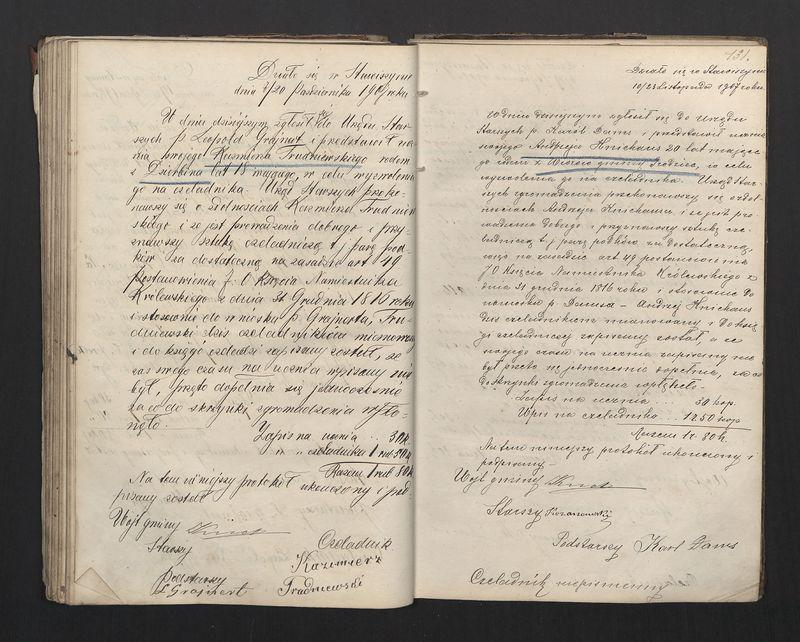 Działo się w Stawiszynie
dnia 7/20 Października 1907 roku
W dniu dzisiejszym zgłosił się do Urzędu Star-
szych p. Leopold Grajnert i przedstawił ucz-
nia swojego Kazimierza Trudniewskiego rodem
z Dzierbina lat 18 mającego, w celu wyzwolenia
go na czeladnika. Urząd Starszych przeko-
nawszy się o zdolnościach Kazimierza Trudniew-
skiego i że jest prowadzenia dobrego i przy-
znawszy sztukę czeladniczą tj parę pod-
ków za dostateczną na zasadzie art 49
Postanowienia J. O. Księcia Namiestnika
Królewskiego z dnia 31 Grudnia 1816 roku
i stosownie do wniosku p. Grajnerta, Tru-
dniewski dziś czeladnikiem mianowany
i do księgi czeladzi zapisany został, że
zaś swego czasu na ucznia wpisany nie
był, przeto dopełnia się jednocześnie
za co do skrzynki zgromadzenia wpły-
nęło
Zapis na ucznia ... 30 k.
" " czeladnika 1 rub 50 k.
Razem 1 rub 80 k.
Na tem niniejszy protokół ukończony i pod-
pisany został
Wójt gminy
Starszy
Podstarszy
L Grajnert
Czeladnik
Kazimierz
Trudniewski
131.
Działo się w Stawiszynie
10/23 Listopada 1907 roku
W dniu dzisiejszym zgłosił się do Urzędu
Starszych p. Karol Daws i przedstawił ucznia
swojego Andrzeja Knichausa 20 lat mające-
go rodem z gminy w celu
wyzwolenia go na czeladnika. Urząd Star-
szych zgromadzenia przekonawszy się o zdol-
nościach Andrzeja Knichausa i że jest pro-
wadzenia dobrego i przyznawszy sztukę cze-
ladniczą tj parę podków za dostateczną,
na zasadzie art 49 postanowienia
J O Księcia Namiestnika Królewskiego z
dnia 31 grudnia 1816 roku i stosownie do
wniosku p. Dawsa - Andrzej Knichaus
dziś czeladnikiem mianowany i do księ-
gi czeladniczej zapisany został, a że
swojego czasu na ucznia zapisany nie
był przeto się jednocześnie dopełnia, za co
do skrzynki zgromadzenia wpłynęło -
Zapis na ucznia ... 30 kop.
Wpis na czeladnika ... 1r 50 kop
Razem 1r. 80 k.
Na tem niniejszy protokół ukończony i
podpisany -
Wójt gminy
Starszy
Podstarszy Karl Daws
Czeladnik niepiśmienny